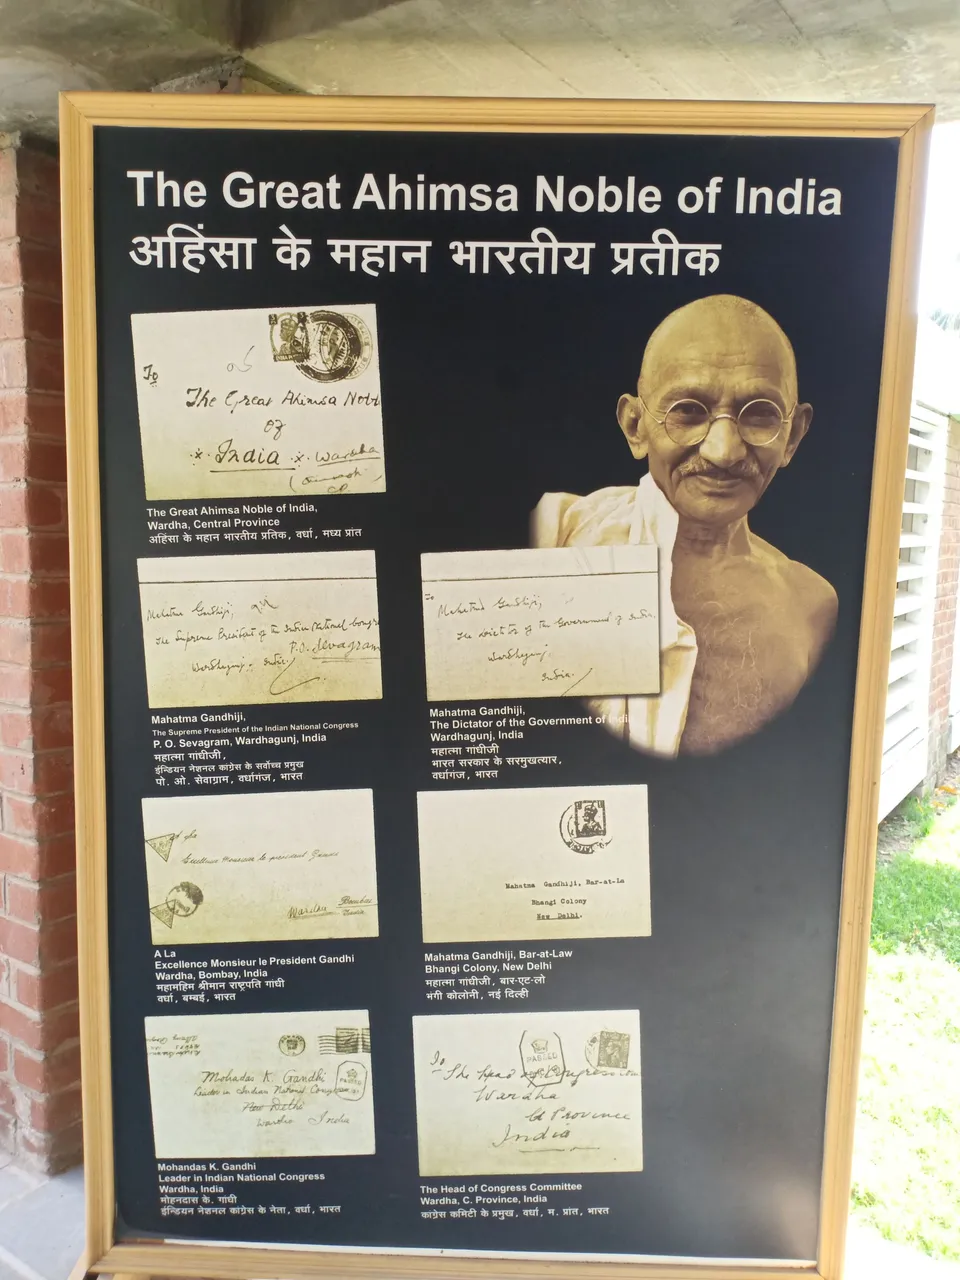 The Great Ahimsa Noble of India
अहिंसा के महान भारतीय प्रतीक
To
The Great Ahimsa Nobl
of
India Wardha
The Great Ahimsa Noble of India,
Wardha, Central Province
अहिंसा के महान भारतीय प्रतिक, वर्धा, मध्य प्रांत
Mahatma Gandhiji,
The Supreme President of the Indian National Congr
P.O. Sevagram
Wardhagunj, India
Mahatma Gandhiji,
The Supreme President of the Indian National Congress
P. O. Sevagram, Wardhagunj, India
महात्मा गांधीजी,
इंन्डियन नेशनल कांग्रेस के सर्वोच्च प्रमुख
पो. ओ. सेवाग्राम, वर्धागंज, भारत
To
Mahatma Gandhiji,
The Dictator of the Government of India.
Wardhagunj.
India.
Mahatma Gandhiji,
The Dictator of the Government of Indi
Wardhagunj, India
महात्मा गांधीजी
भारत सरकार के सरमुखत्यार,
वर्धागंज, भारत
A La
Excellence Monsieur le president Gandhi
Wardha Bombay
India
A La
Excellence Monsieur le President Gandhi
Wardha, Bombay, India
महामहिम श्रीमान राष्ट्रपति गांधी
वर्धा, बम्बई, भारत
Mahatma Gandhiji, Bar-at-La
Bhangi Colony
New Delhi.
Mahatma Gandhiji, Bar-at-Law
Bhangi Colony, New Delhi
महात्मा गांधीजी, बार-एट-लो
भंगी कोलोनी, नई दिल्ली
Mohadas K. Gandhi
Leader in Indian National Congress
New Delhi
Wardha India
Mohandas K. Gandhi
Leader in Indian National Congress
Wardha, India
मोहनदास के. गांधी
इंन्डियन नेशनल कांग्रेस के नेता, वर्धा, भारत
PASSED
To
The Head of Congress Com
Wardha
C Province
India
The Head of Congress Committee
Wardha, C. Province, India
कांग्रेस कमिटी के प्रमुख, वर्धा, म. प्रांत, भारत